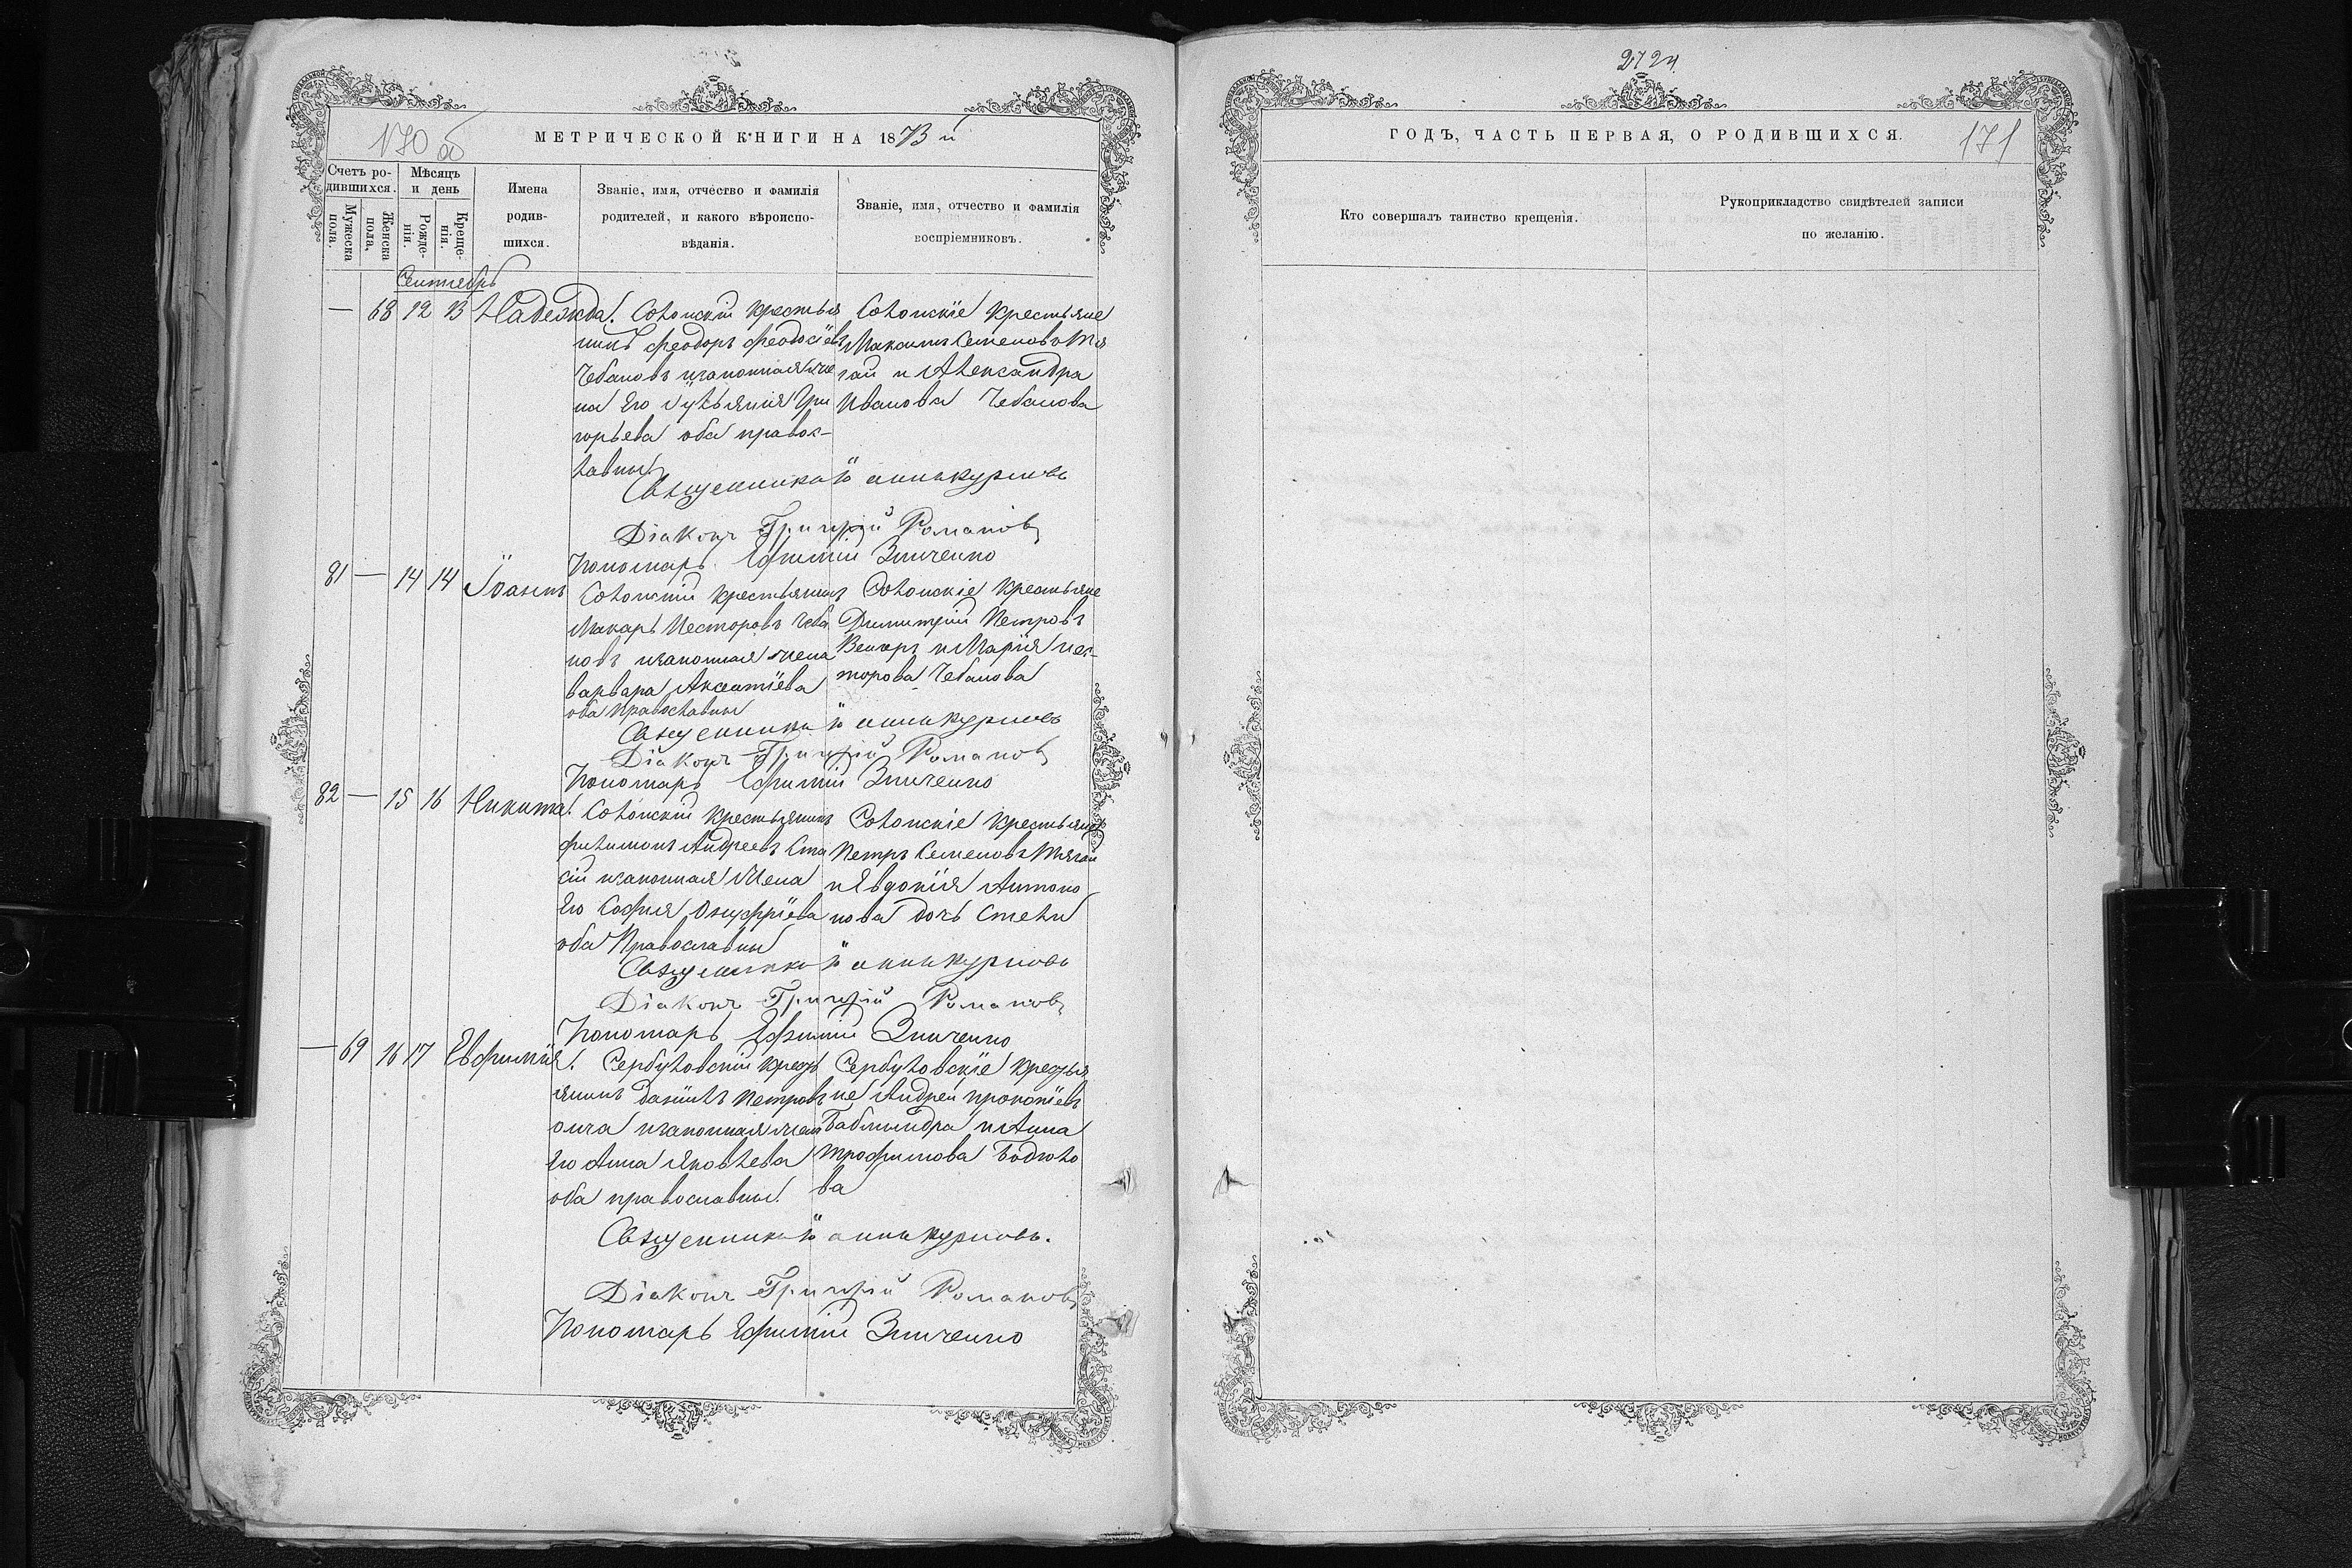 170 об
МЕТРИЧЕСКОЙ КНИГИ НА 1873 й
Счетъ ро-
дившихся.
Мужеска
пола.
Женска
пола.
Мѣсяцъ
и день
Рожде-
нія.
Креще-
нія.
Имена
родив-
шихся.
Званіе, имя, отчество и фамилія
родителей, и какого вѣроиспо-
вѣданія.
Званіе, имя, отчество и фамилія
воспріемниковъ.
Сентябрь
— 68 12 13 Надежда. Солонскій крестья
нинъ Феодоръ Феодосіевъ
Чебановъ и законная же
на его Ульяния Гри
горьева оба правос-
лавны
Солонскіе крестьяне
Максимъ Семеновъ Тя
гай и Александра
Иванова Чебанова
Священникъ Іоаннъ Курповъ
Діаконъ Григорій Романовъ
Пономарь Ефимій Зинченко
81 — 14 14 Іоаннъ Солонскій крестьянинъ
Макаръ Несторовъ Чеба
новъ и законная жена
Варвара Аксентіева
оба православны
Солонскіе крестьяне
Димитрій Петровъ
Венгеръ и Марія Нес-
торова Чебанова
Священникъ Іоаннъ Курповъ
Діаконъ Григорій Романовъ
Пономарь Ефимій Зинченко
82 — 15 16 Никита. Солонскій крестьянинъ
Филимонъ Андреевъ Ста
сій и законная жена
его София Онуфріева
оба Православны
Солонскіе крестьяне
Петръ Семеновъ Тягай
и Евдокія Антоно
нова дочь Стели
Священникъ Іоаннъ Курповъ
Діаконъ Григорій Романовъ
Пономарь Ефимій Зинченко
— 69 16 17 Евфимія. Сербуловскій кресть
янинъ Даніилъ Петровъ
и законная жена
его Анна Яковлева
оба православны.
Сербуловскіе крестья
не Андрей Прокопіевъ
и Анна
Трофимова Бодюло
ва
Священникъ Іоаннъ Курповъ.
Діаконъ Григорій Романовъ
Пономарь Ефимій Зинченко
272
171
ГОДЪ, ЧАСТЬ ПЕРВАЯ, О РОДИВШИХСЯ.
Кто совершалъ таинство крещенія.
Рукоприкладство свидѣтелей записи
по желанію.